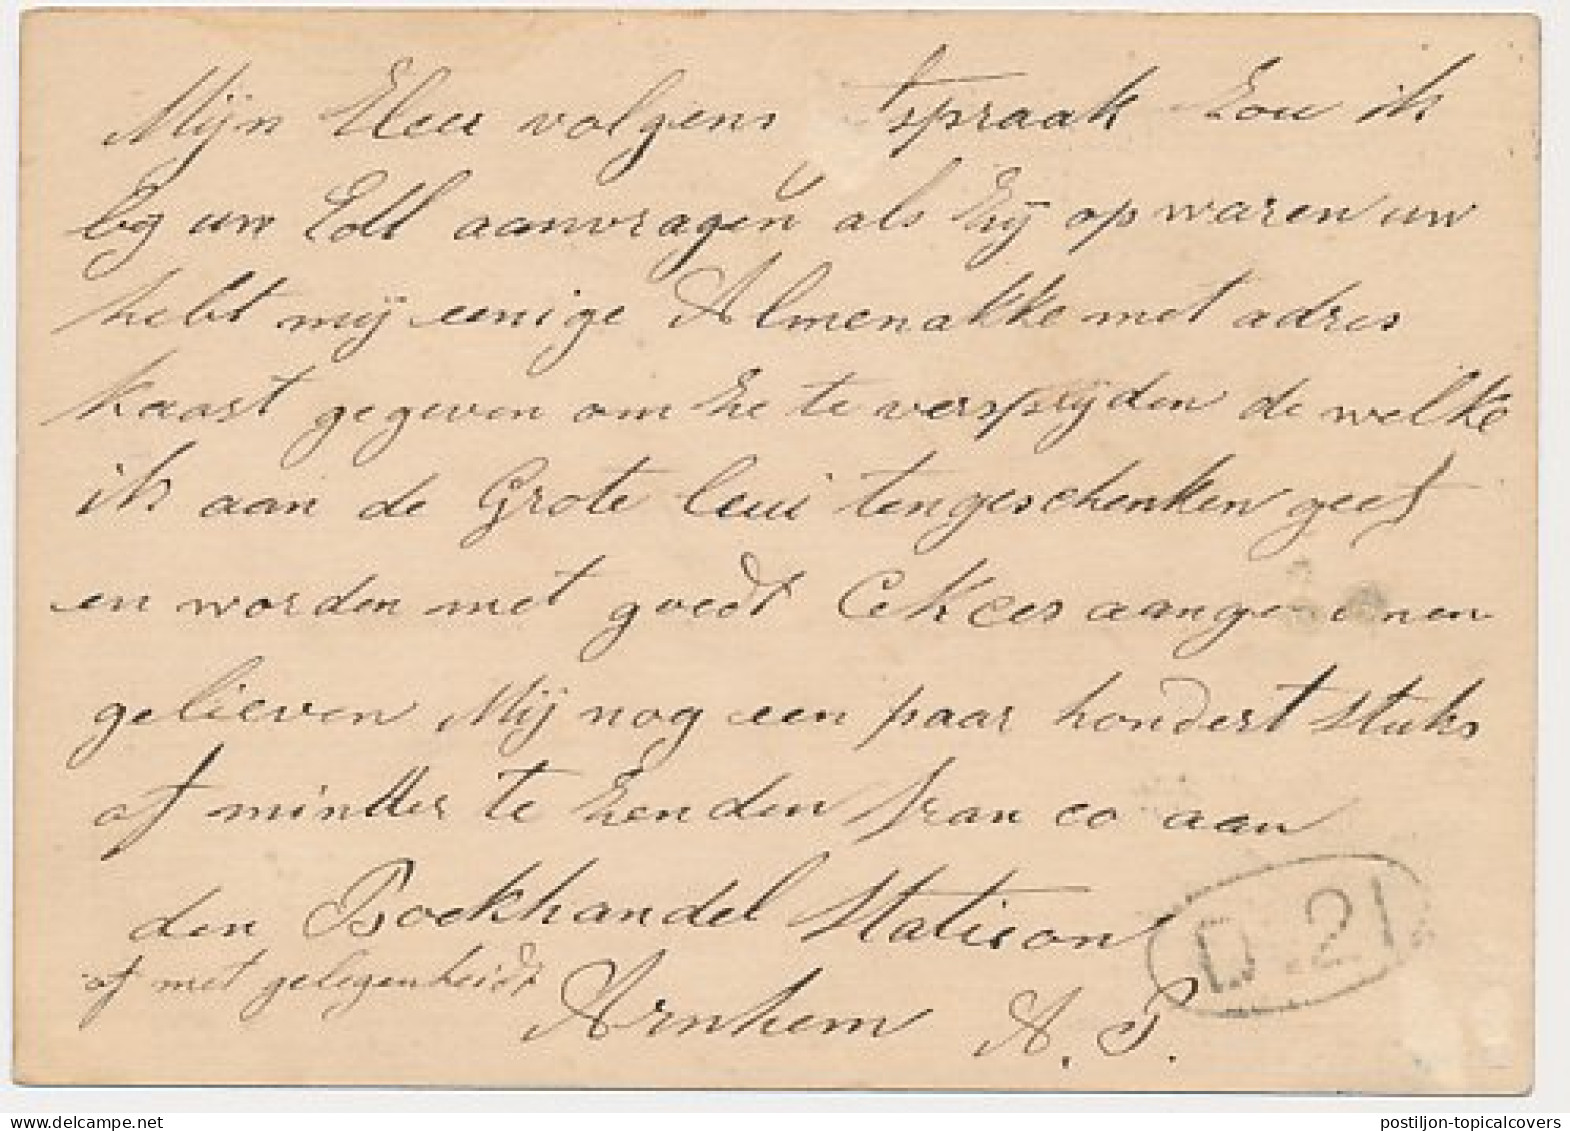 Mijn Heer volgens spraak Zou ik
by uw Edl aanvragen als Zij op waren uw
hebt mij eenige Almenakke met adres
kaart gegeven om ze te verspryden de welke
ik aan de Grote leui tengeschenken geef
en worden met goedt aangenomen
gelieven Mij nog een paar hondert stuks
of minder te Zenden franco aan
den Boekhandel Statieon
of met gelegenheidt
Arnhem A. P.
D.21
delcampe.net
postiljon-topicalcovers